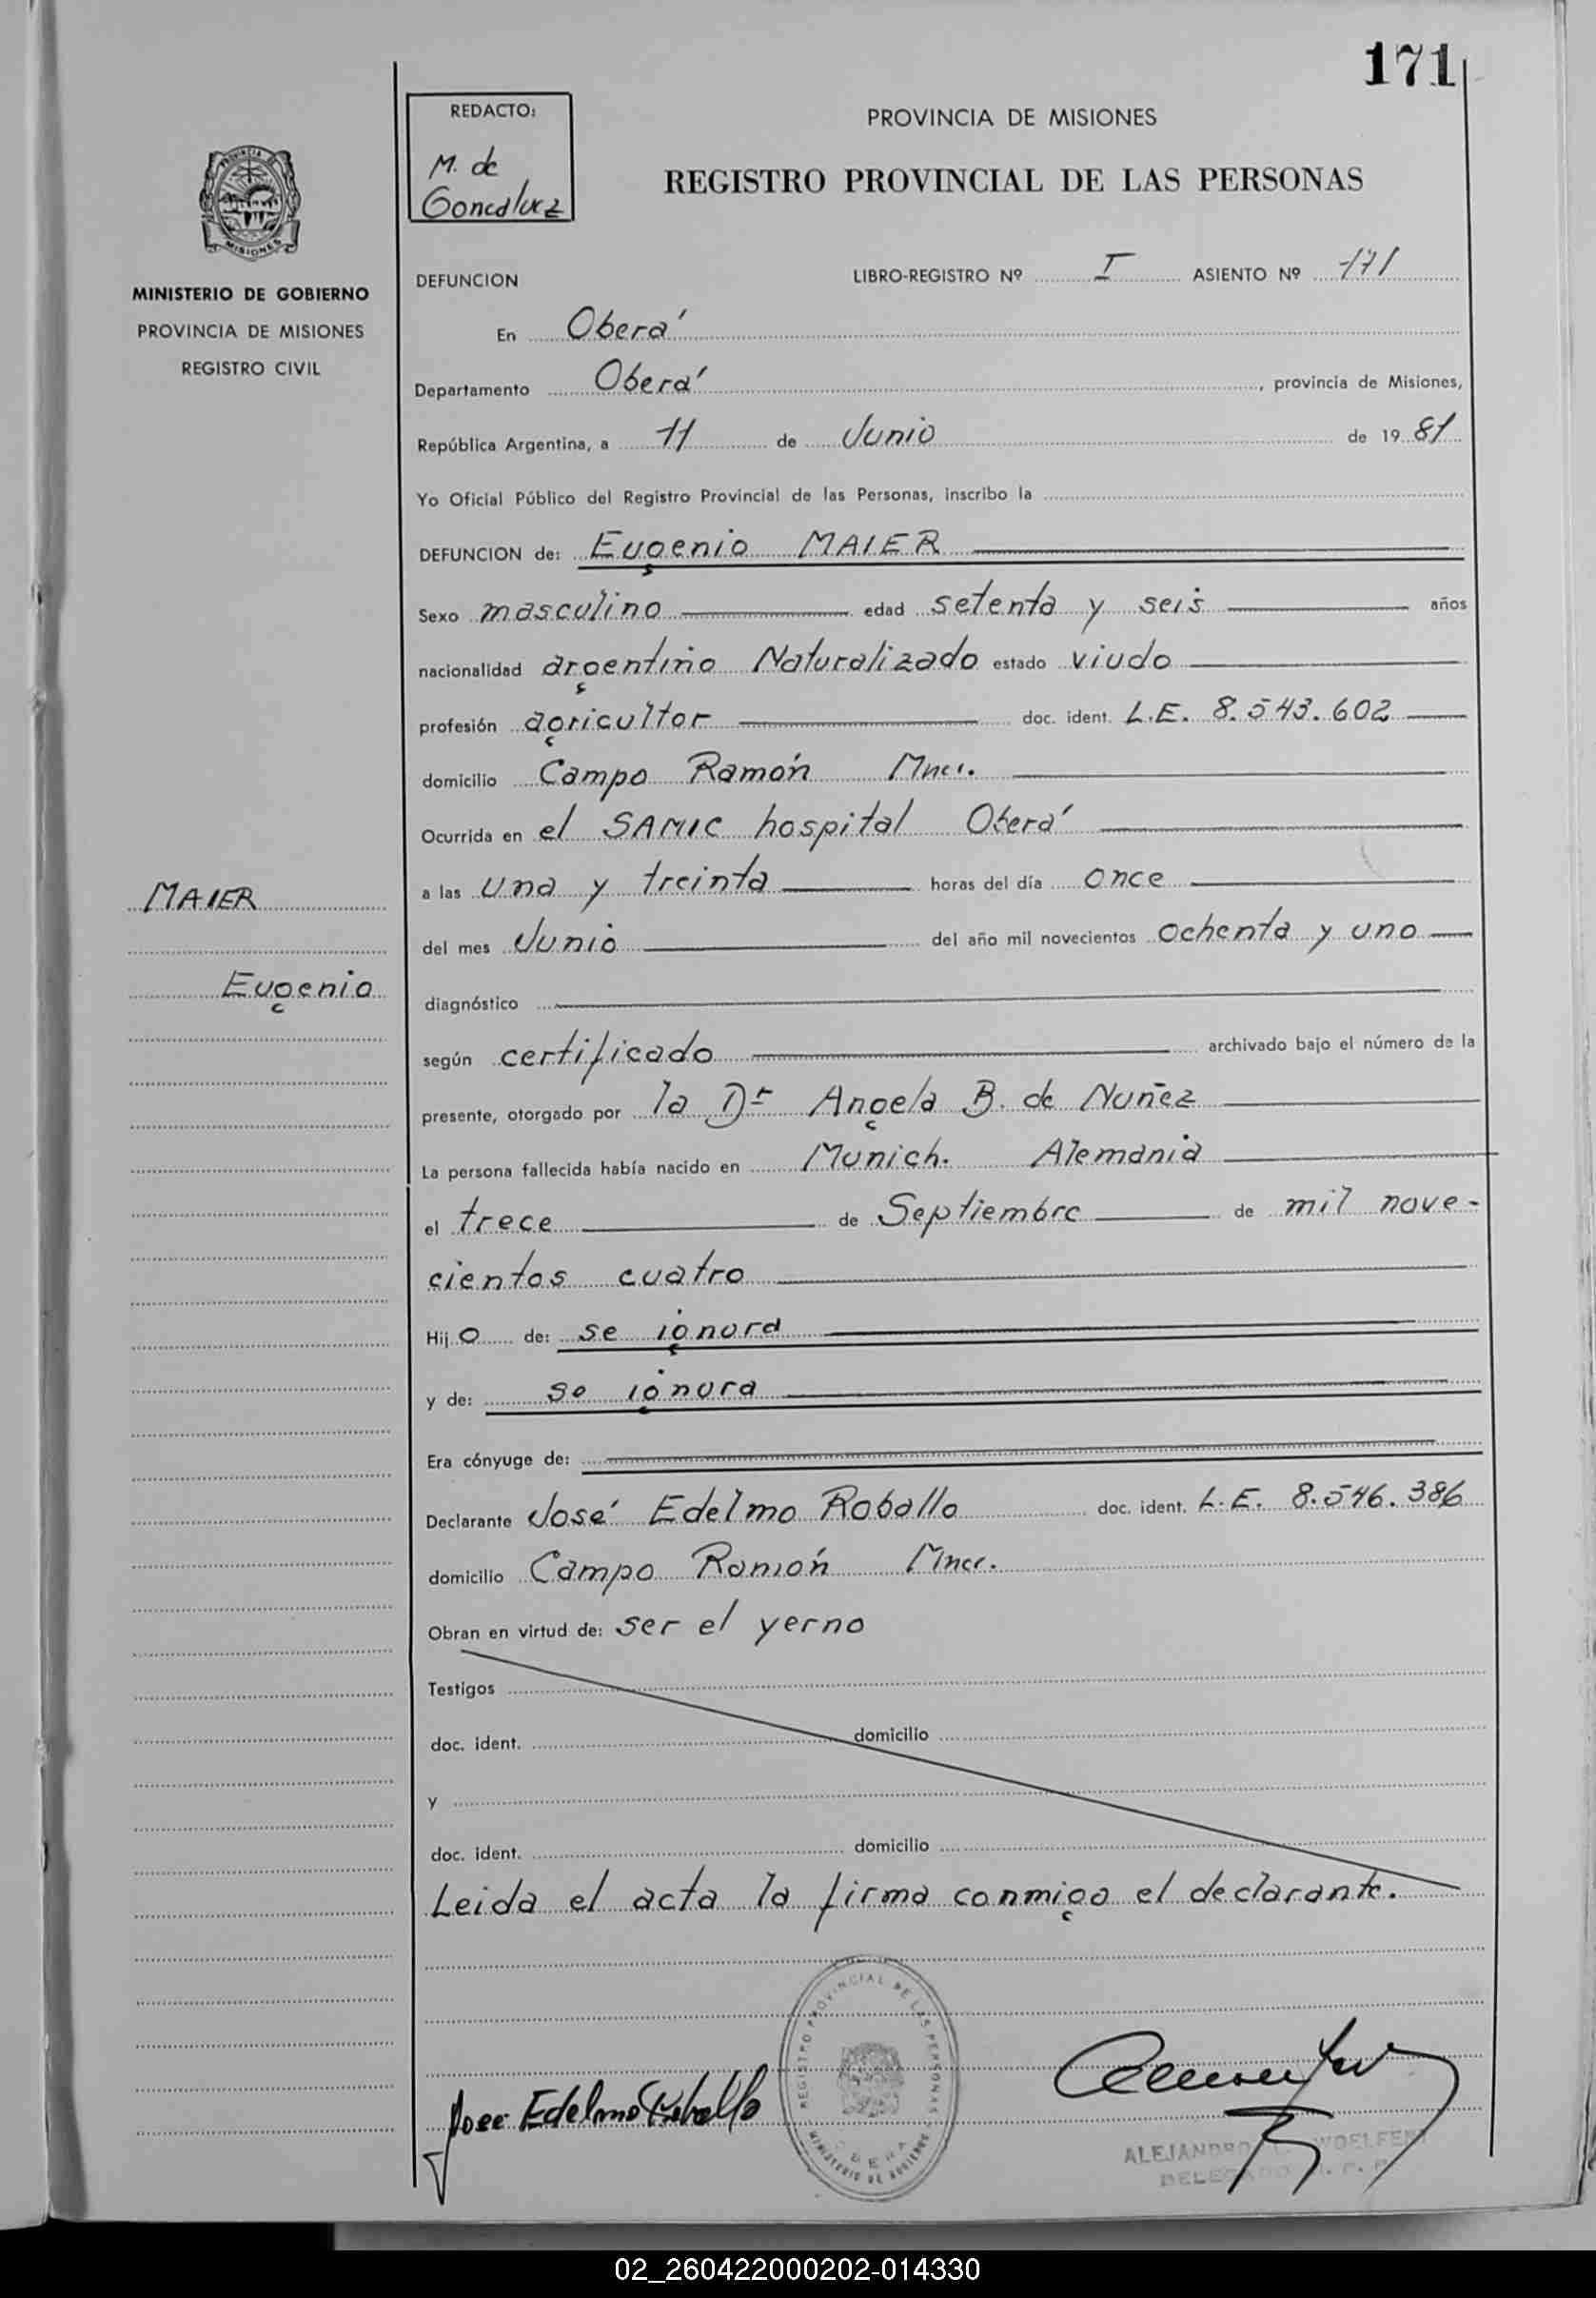 171
REDACTO:
M. de
Goncalvez
PROVINCIA DE MISIONES
REGISTRO PROVINCIAL DE LAS PERSONAS
MISIONES
MINISTERIO DE GOBIERNO
PROVINCIA DE MISIONES
REGISTRO CIVIL
DEFUNCION LIBRO-REGISTRO Nº I ASIENTO Nº 171
En Oberá
Departamento Oberá, provincia de Misiones,
República Argentina, a 11 de Junio de 1981
Yo Oficial Público del Registro Provincial de las Personas, inscribo la
DEFUNCION de: Eugenio MAIER
Sexo masculino edad setenta y seis años
nacionalidad argentino Naturalizado estado viudo
profesión agricultor doc. ident. L.E. 8.543.602
domicilio Campo Ramón Mnes.
Ocurrida en el SAMIC hospital Oberá
a las una y treinta horas del día once
del mes Junio del año mil novecientos ochenta y uno
diagnóstico
según certificado archivado bajo el número de la
presente, otorgado por la Dra Angela B. de Nuñez
La persona fallecida había nacido en Munich. Alemania
el trece de Septiembre de mil nove-
cientos cuatro
Hijo de: se ignora
y de: se ignora
Era cónyuge de:
Declarante José Edelmo Roballo doc. ident. L.E. 8.546.386
domicilio Campo Ramón Mnes.
Obran en virtud de: ser el yerno
Testigos
doc. ident. domicilio
y
doc. ident. domicilio
Leida el acta la firma conmigo el declarante.
MAIER
Eugenio
Jose Edelmo Roballo
REGISTRO PROVINCIAL DE LAS PERSONAS
OBERA
MINISTERIO DE GOBIERNO
ALEJANDRO WOELFERT
DELEGADO
02_260422000202-014330